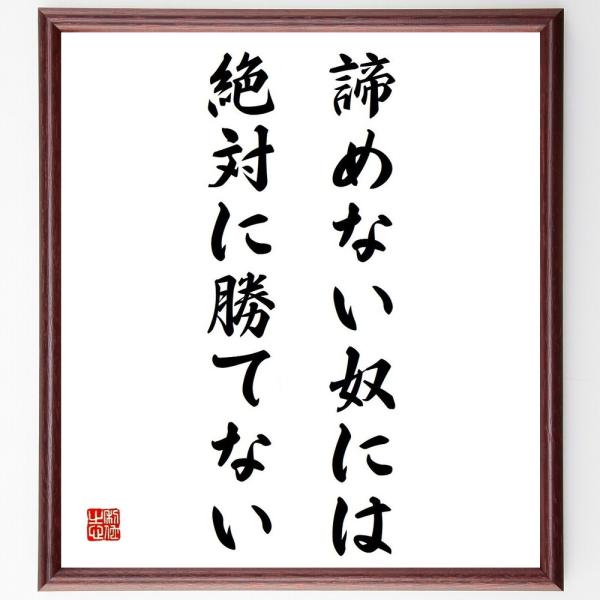 諦めない奴には
絶対に勝てない